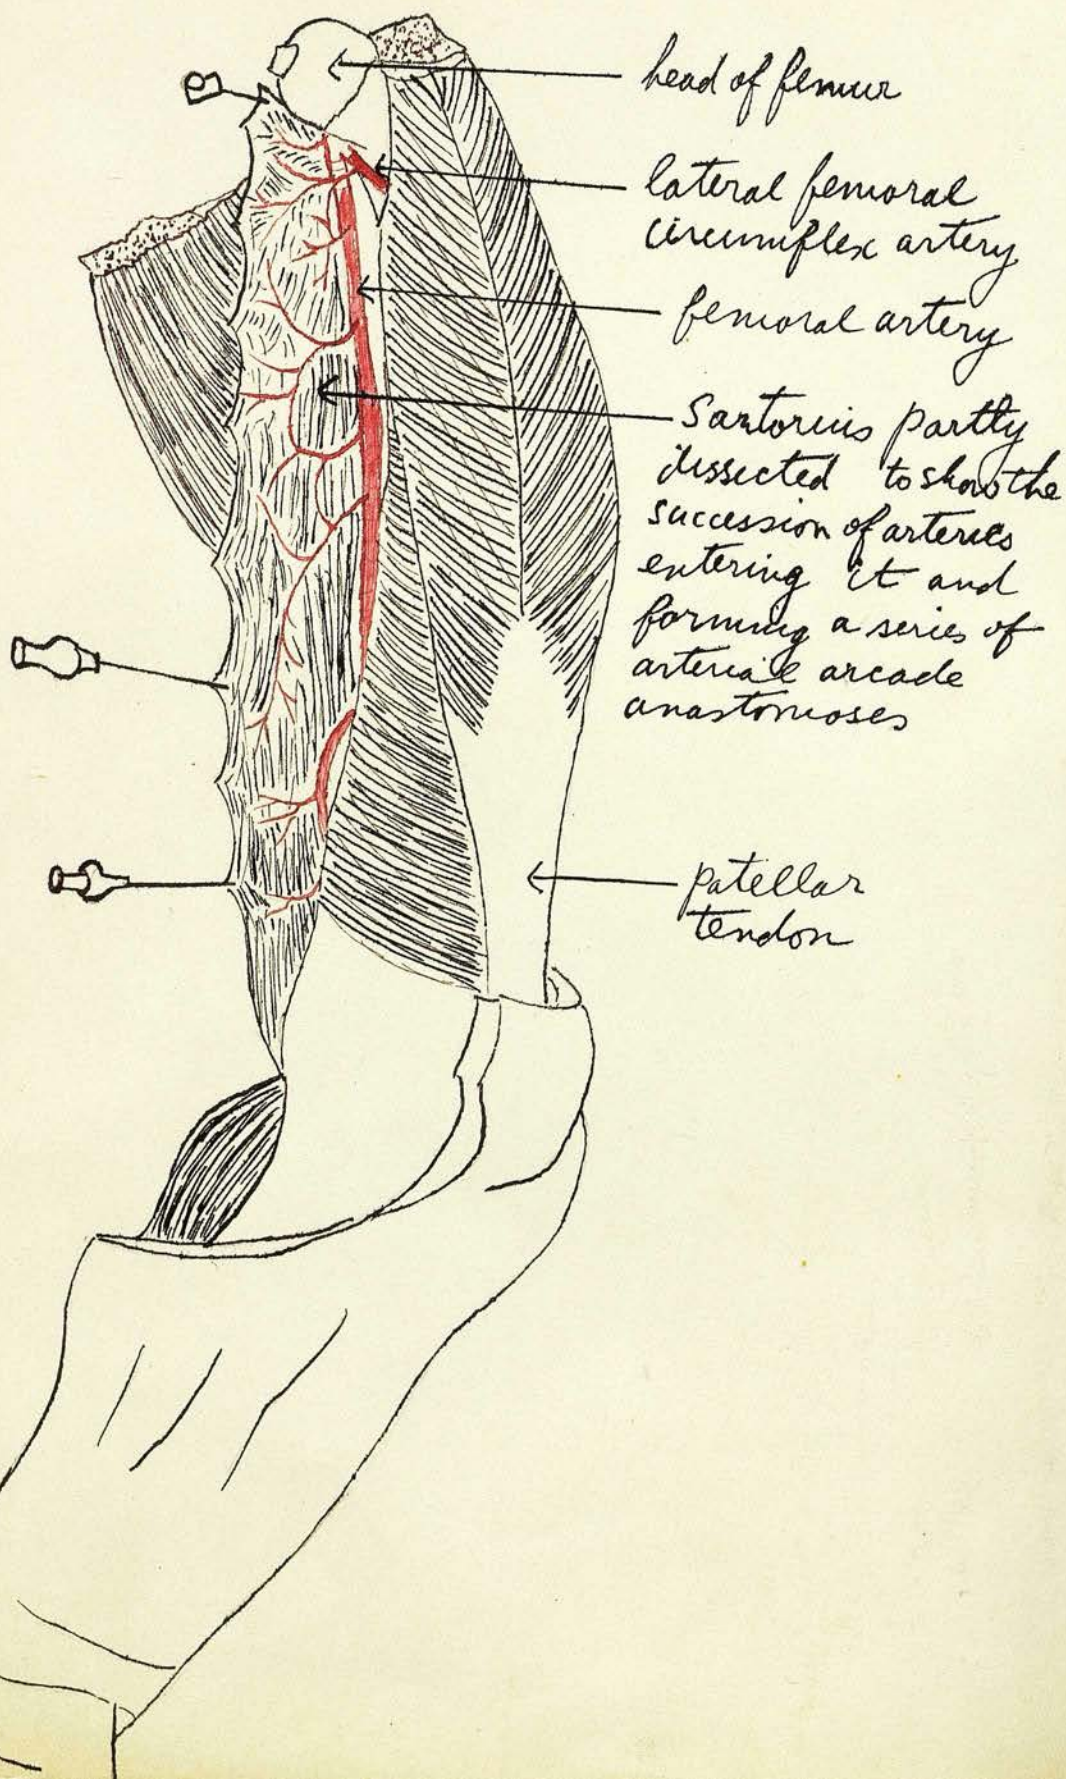 head of femur
lateral femoral
circumflex artery
femoral artery
Sartorius partly
dissected to show the
succession of arteries
entering it and
forming a series of
arterial arcade
anastomoses
patellar
tendon